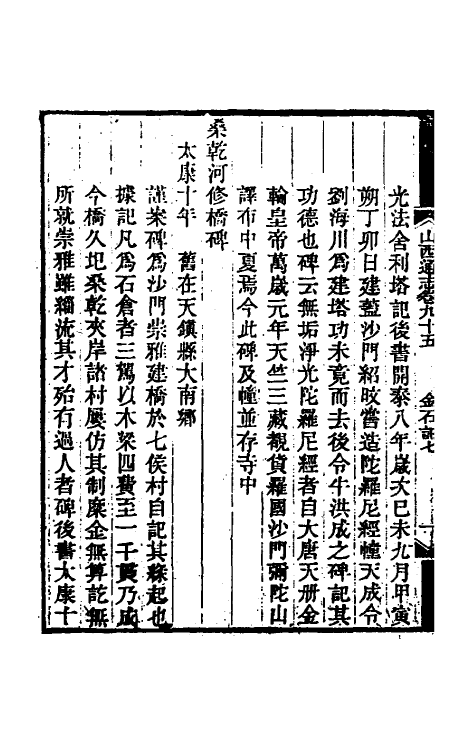 山西通志卷九十五　金石記七
光法舍利塔記後書開泰八年歲次己未九月甲寅
朔丁卯日建蓋沙門紹旼嘗造陀羅尼經幢天成令
劉海川爲建塔功未竟而去後令牛洪成之碑記其
功德也碑云無垢淨光陀羅尼經者自大唐天册金
輪皇帝萬歲元年天竺三藏覩貨羅國沙門彌陀山
譯布中夏焉今此碑及幢並存寺中
桑乾河修橋碑
太康十年　舊在天鎮縣大南鄉
謹案碑爲沙門崇雅建橋於七侯村自記其緣起也
據記凡爲石倉者三駕以木梁四費至一千貫乃成
今橋久圯桑乾夾岸諸村屢仿其制糜金無算訖無
所就崇雅雖緇流其才殆有過人者碑後書太康十